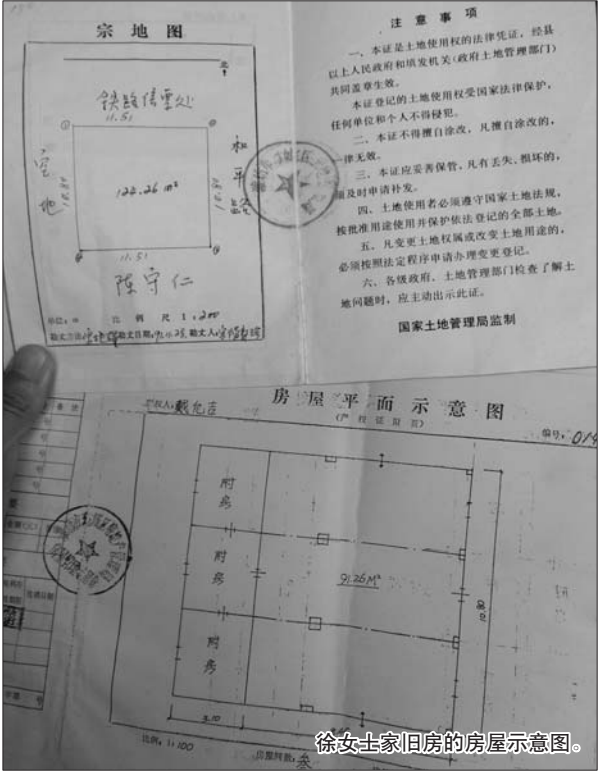 宗地图
北
铁路信号处
11.51
空地
和平路
122.26 m²
10.80
11.51
陈守仁
单位: m 比例尺 1:200
勘丈日期: 勘丈人:
注意事项
一、本证是土地使用权的法律凭证，经县
以上人民政府和填发机关(政府土地管理部门)
共同盖章生效。
本证登记的土地使用权受国家法律保护，
任何单位和个人不得侵犯。
二、本证不得擅自涂改，凡擅自涂改的，
一律无效。
三、本证应妥善保管，凡有丢失、损坏的，
须及时申请补发。
四、土地使用者必须遵守国家土地法规，
按批准用途使用并保护依法登记的全部土地。
五、凡变更土地权属或改变土地用途的，
必须按照法定程序申请办理变更登记。
六、各级政府、土地管理部门检查了解土
地问题时，应主动出示此证。
国家土地管理局监制
房屋平面示意图
(产权证附页)
产权人: 戴允吉
编号: 014
附房
附房
附房
91.26M²
10.80
3.10
比例: 1:100
房屋间数: 叁
徐女士家旧房的房屋示意图。